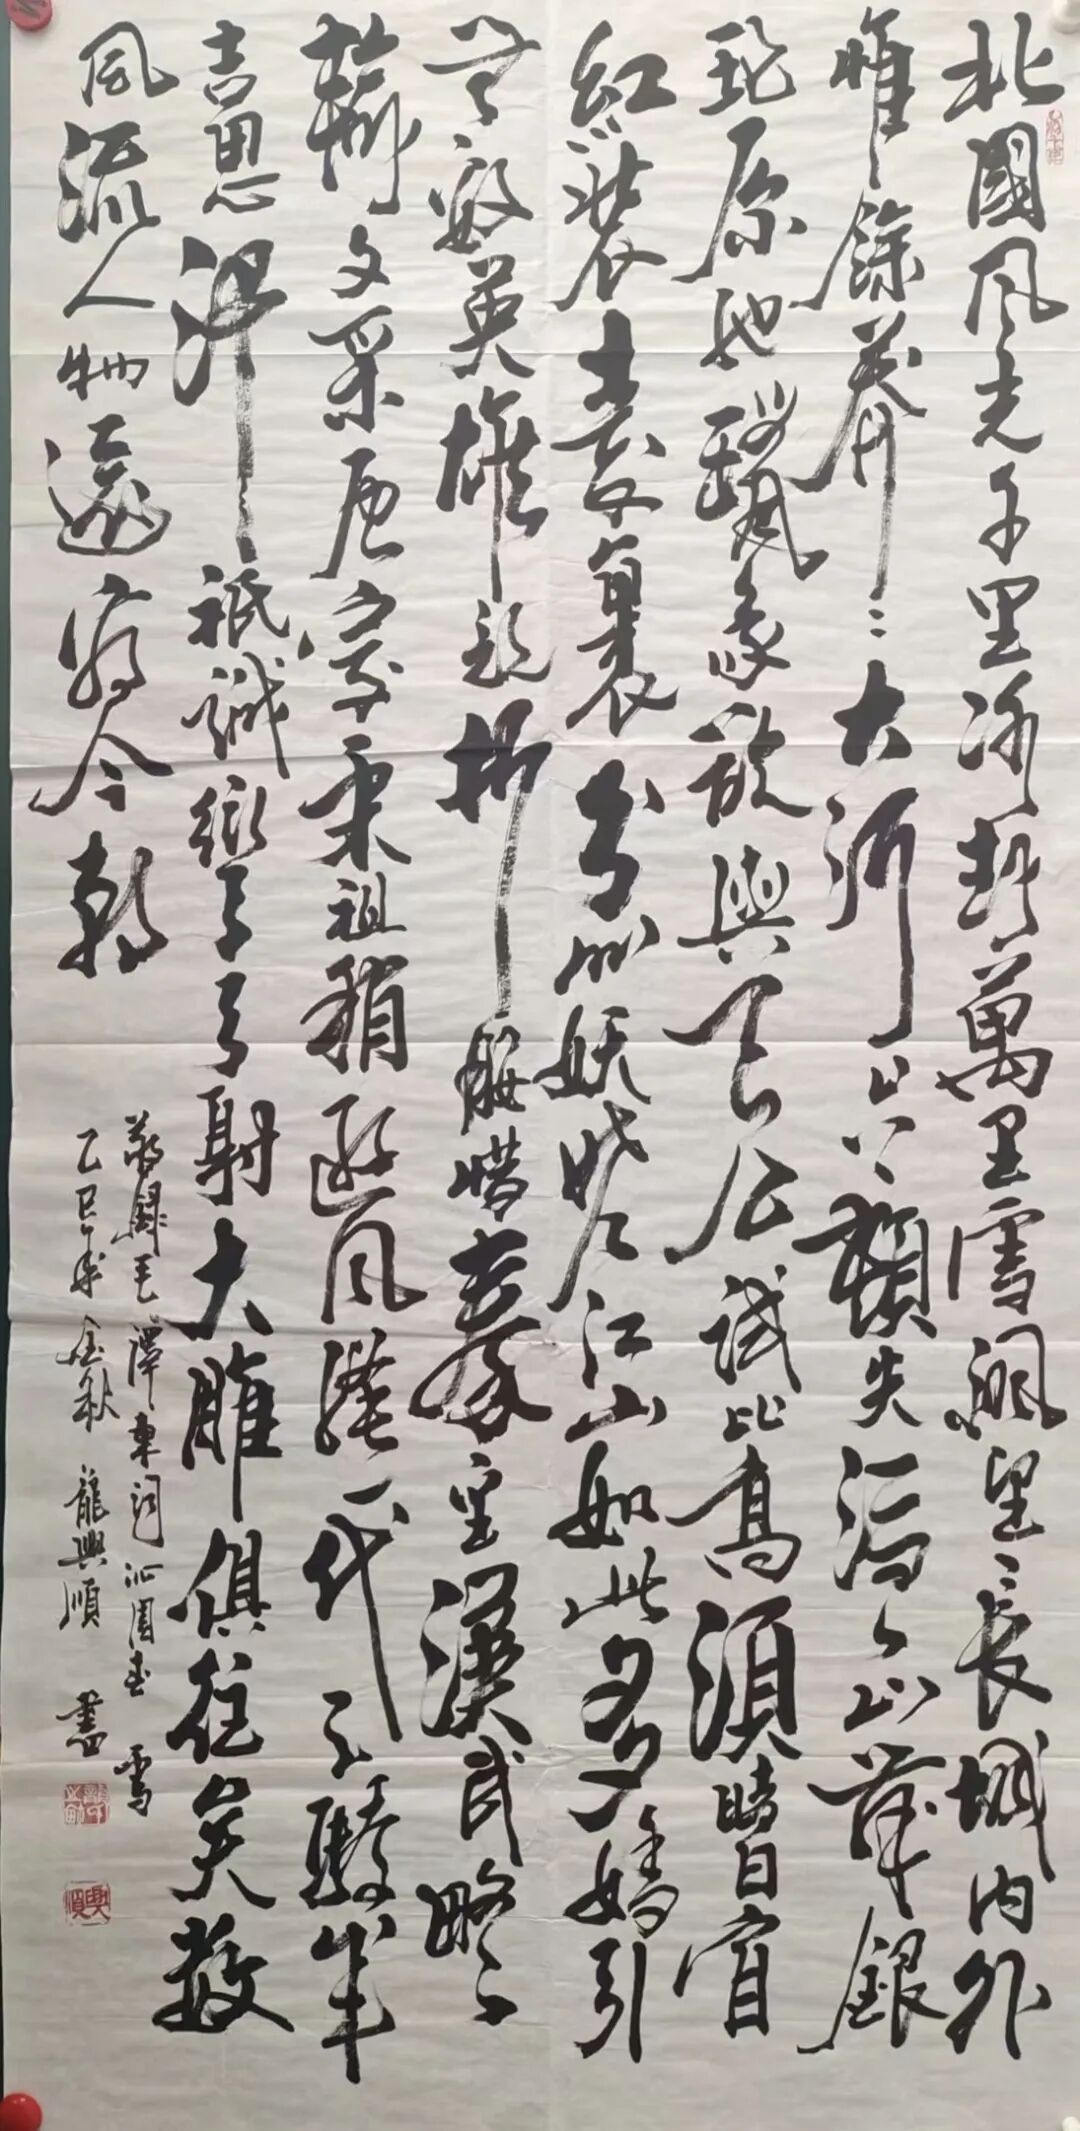 北國風光千里冰封萬里雪飄望長城內外
惟餘莽〻大河上下頓失滔〻山舞銀
蛇原馳蠟象欲與天公試比高須晴日看
紅裝素裹分外妖嬈江山如此多嬌引
無數英雄競折腰惜秦皇漢武略
輸文采唐宗宋祖稍遜風騷一代天驕成
吉思汗祇識彎弓射大雕俱往矣數
風流人物還看今朝
敬錄毛澤東詞沁園春雪
乙巳年金秋 龍興順書